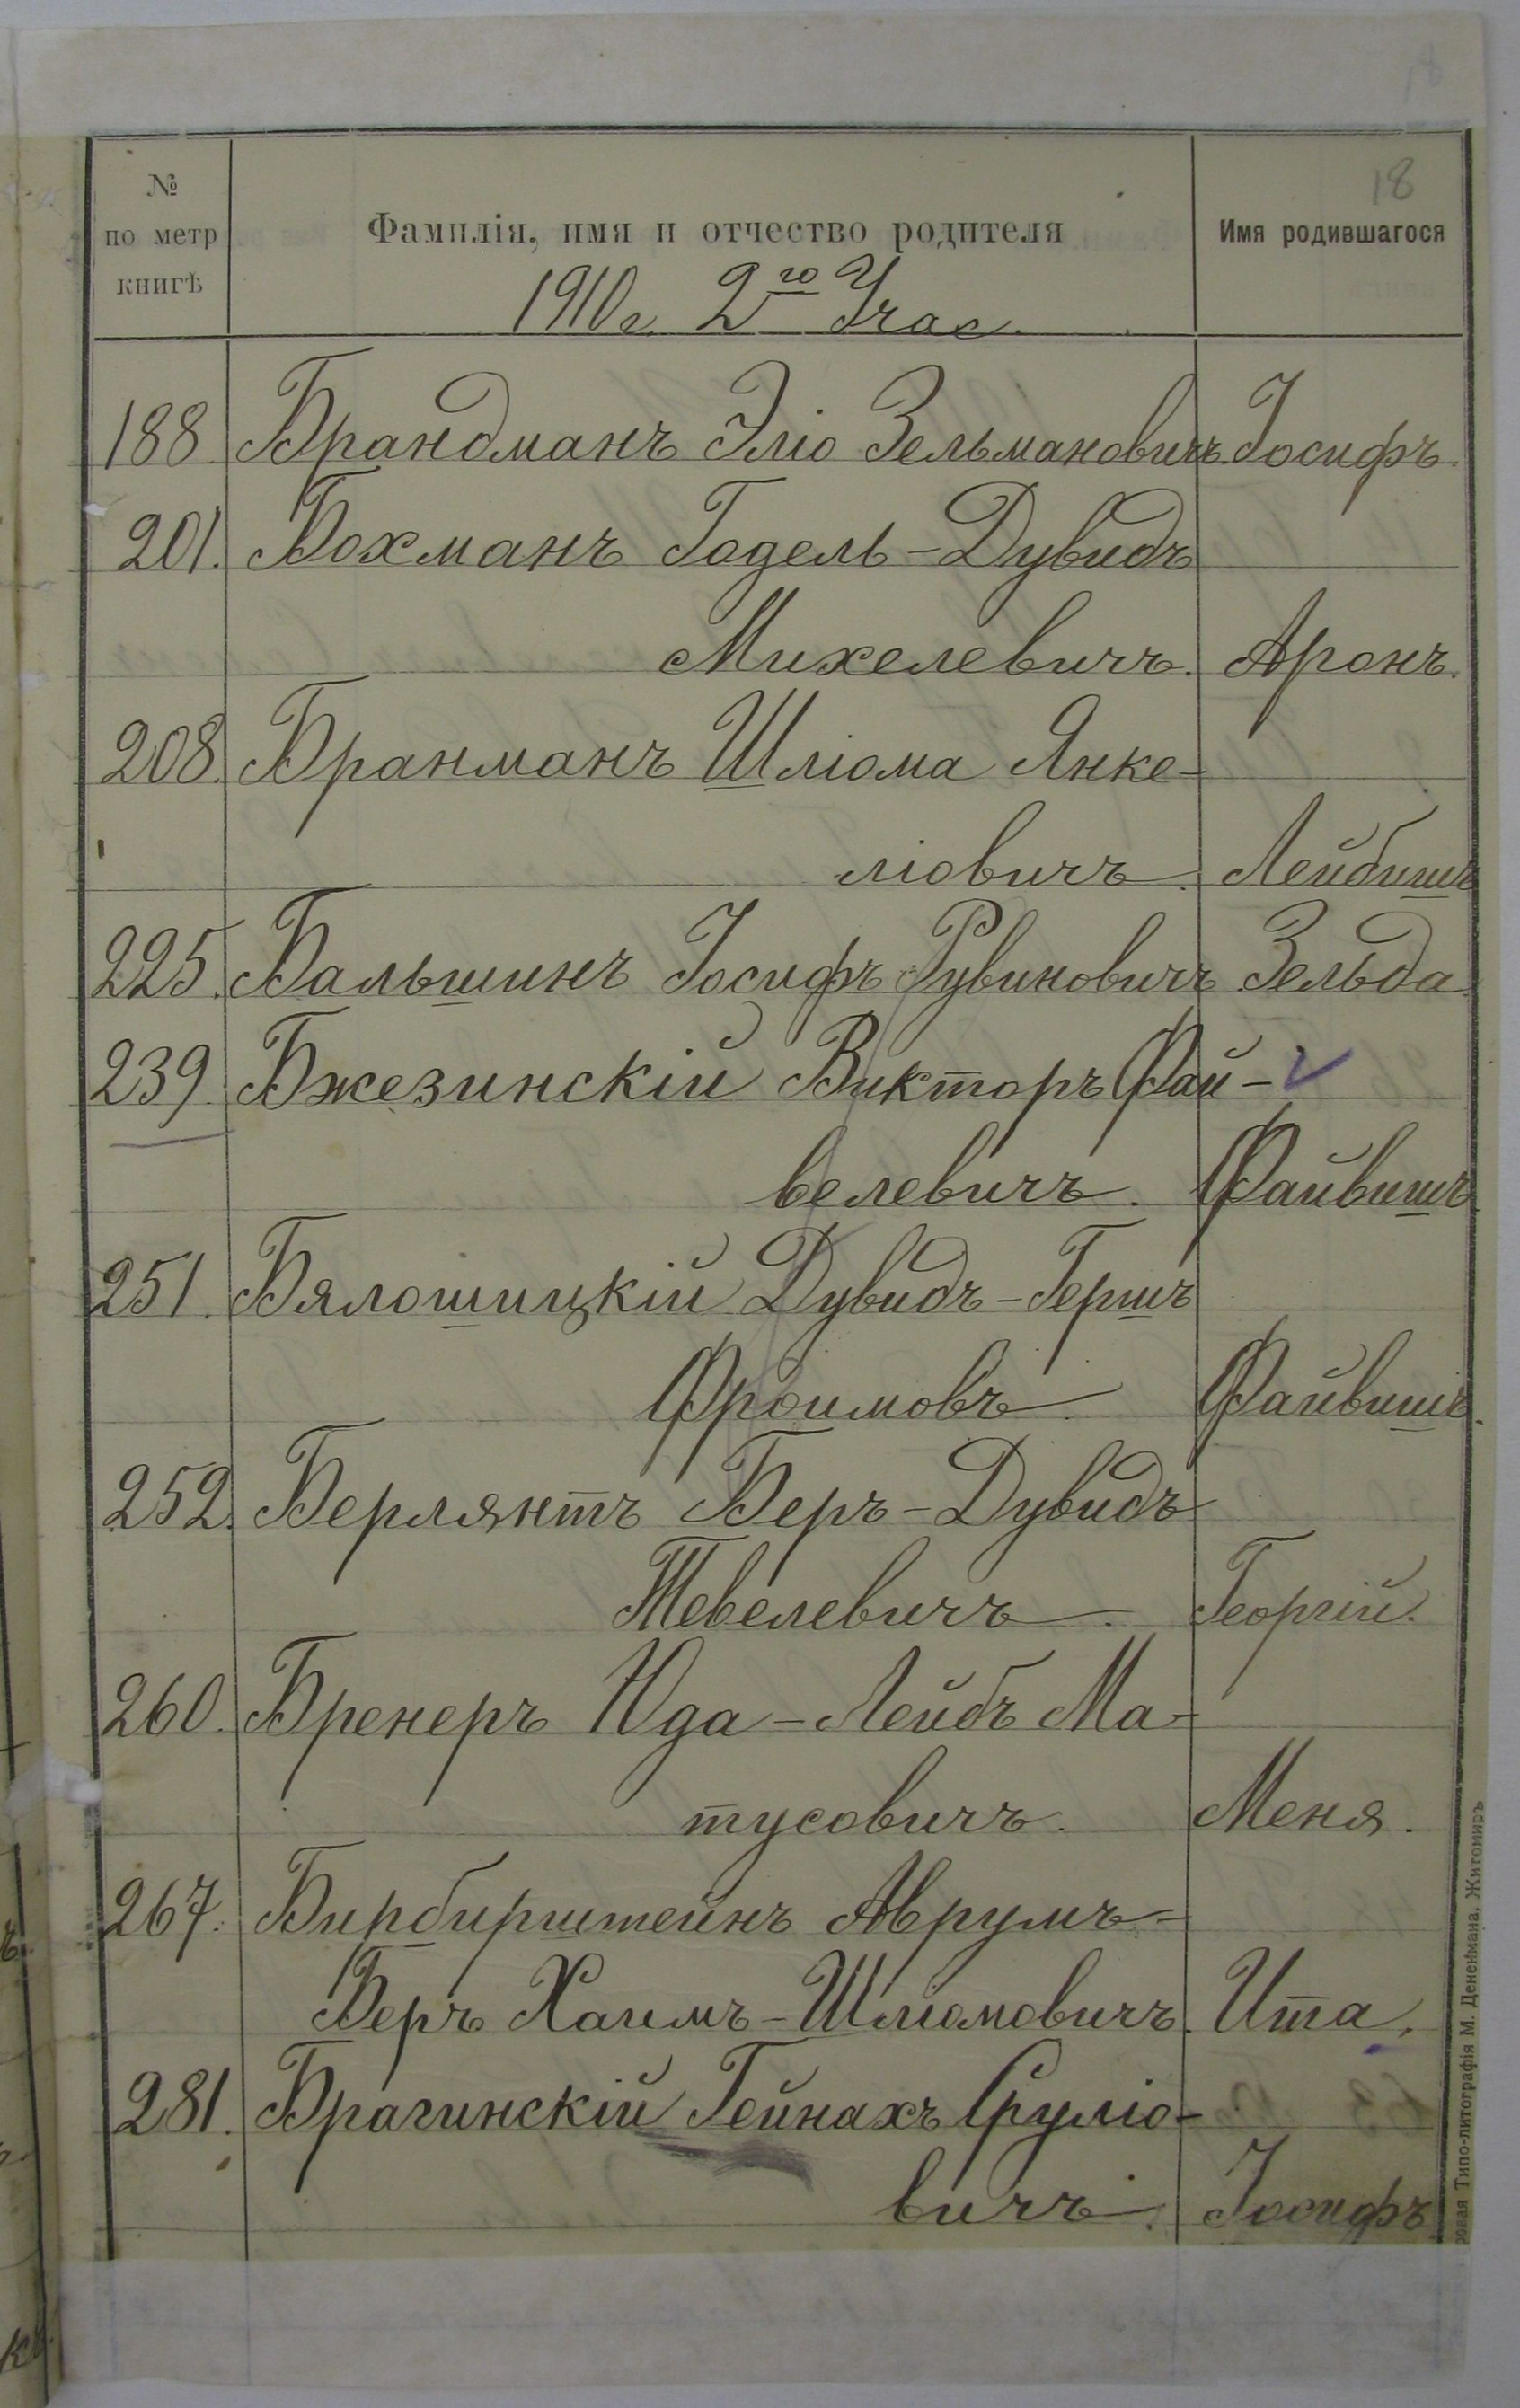 18
№ по метр книгѣ
Фамилія, имя и отчество родителя
Имя родившагося
18
1910 г. 2го Учас.
188 Брандманъ Эліо Зельмановичъ. Іосифъ.
201. Бохманъ Годель-Дувидъ
Михелевичъ. Аронъ.
208. Бранманъ Шліома Янке-
ліовичъ. Лейбишъ
225. Бальшинъ Іосифъ Рувиновичъ Зельда
239. Бжезинскій Викторъ Фай-
велевичъ. Файвишъ
251. Бялошицкій Дувидъ-Гершъ
Фроимовъ. Файвишъ.
252. Берлянтъ Беръ-Дувидъ
Тевелевичъ. Георгій.
260. Бренеръ Юда-Лейбъ Ма-
тусовичъ. Меня.
267. Бирбирштейнъ Аврумъ-
Беръ Хаимъ-Шліомовичъ. Ита.
281. Брагинскій Гейнахъ Сруліо-
вичъ. Іосифъ
Типо-литографія М. Дененмана, Житомиръ